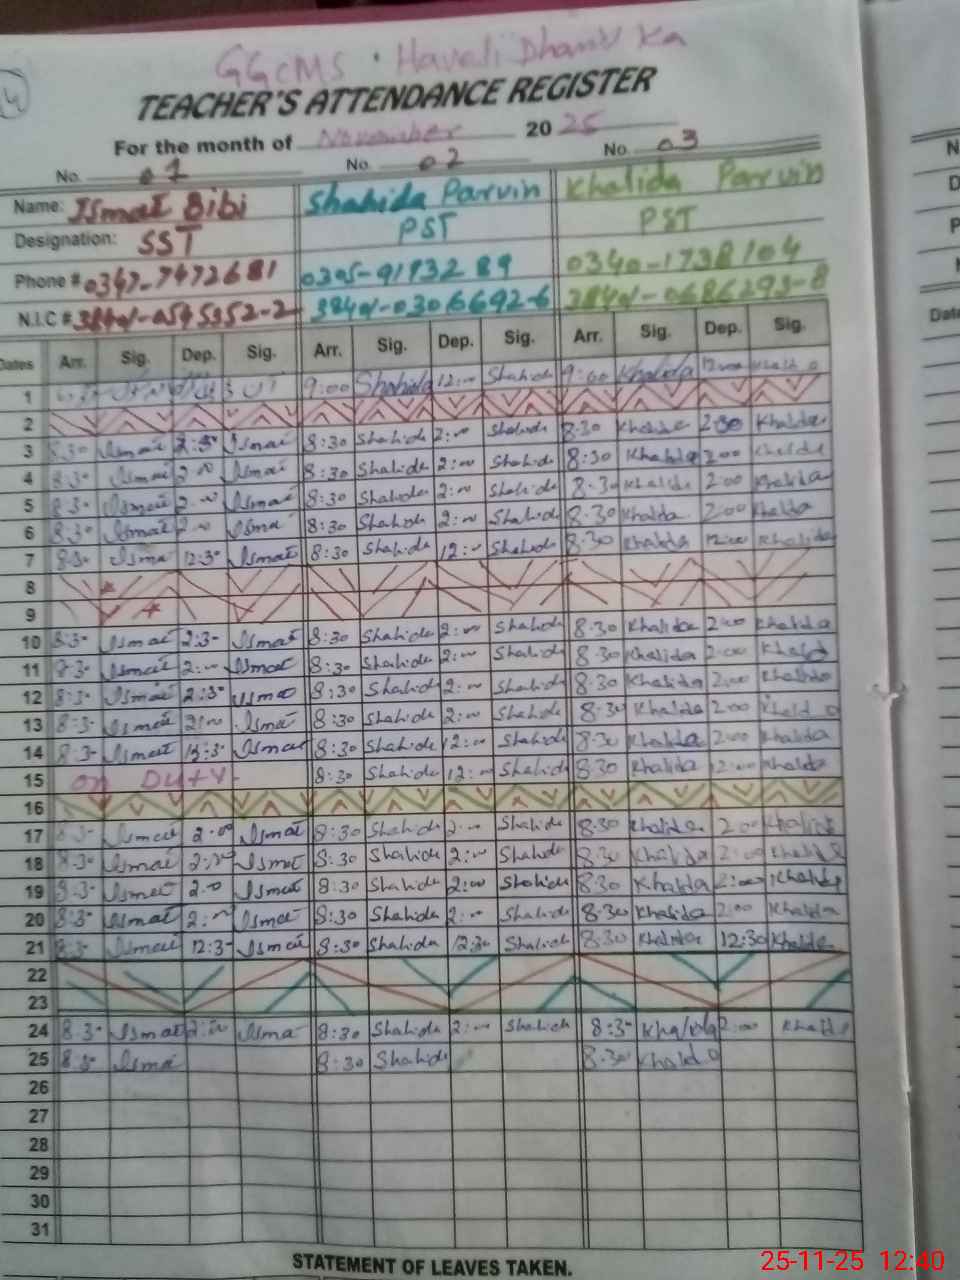 4
GGCMS . Haveli Dhamu Ka
TEACHER'S ATTENDANCE REGISTER
For the month of November 2025
No. 01 No. 02 No. 03
Name: Ismat Bibi Shahida Parvin Khalida Parvin
Designation: SST PST PST
Phone # 0347-7472681 0305-9193289 0340-1738104
N.I.C # 0306692-6
Dates Arr. Sig. Dep. Sig. Arr. Sig. Dep. Sig. Arr. Sig. Dep. Sig.
1 9:00 Shahida 12:00 Shahida 9:00 Khalida 12:00
2
3 8:30 Ismat 2:30 Ismat 8:30 Shahida 2:00 Shahida 8:30 Khalida 2:30 Khalida
4 8:30 Ismat 2:00 Ismat 8:30 Shahida 2:00 Shahida 8:30 Khalida 2:00 Khalida
5 8:30 Ismat 2:00 Ismat 8:30 Shahida 2:00 Shahida 8:30 Khalida 2:00 Khalida
6 8:30 Ismat 2:00 Ismat 8:30 Shahida 2:00 Shahida 8:30 Khalida 2:00 Khalida
7 8:30 Ismat 12:30 Ismat 8:30 Shahida 12:00 Shahida 8:30 Khalida 12:00 Khalida
8
9
10 8:30 Ismat 2:30 Ismat 8:30 Shahida 2:00 Shahida 8:30 Khalida 2:00 Khalida
11 8:30 Ismat 2:00 Ismat 8:30 Shahida 2:00 Shahida 8:30 Khalida 2:00 Khalida
12 8:30 Ismat 2:30 Ismat 8:30 Shahida 2:00 Shahida 8:30 Khalida 2:00 Khalida
13 8:30 Ismat 2:00 Ismat 8:30 Shahida 2:00 Shahida 8:30 Khalida 2:00 Khalida
14 8:30 Ismat Ismat 8:30 Shahida 12:00 Shahida 8:30 Khalida 2:00 Khalida
15 on Duty 8:30 Shahida 12:00 Shahida 8:30 Khalida 12:00 Khalida
16
17 8:30 Ismat 2:00 Ismat 8:30 Shahida 2:00 Shahida 8:30 Khalida 2:00 Khalida
18 8:30 Ismat 2:00 Ismat 8:30 Shahida 2:00 Shahida 8:30 Khalida 2:00 Khalida
19 8:30 Ismat 2:00 Ismat 8:30 Shahida 2:00 Shahida 8:30 Khalida 2:00 Khalida
20 8:30 Ismat 2:00 Ismat 8:30 Shahida 2:00 Shahida 8:30 Khalida 2:00 Khalida
21 8:30 Ismat 12:30 Ismat 8:30 Shahida 12:30 Shahida 8:30 Khalida 12:30 Khalida
22
23
24 8:30 Ismat 2:00 Ismat 8:30 Shahida 2:00 Shahida 8:30 Khalida 2:00 Khalida
25 8:30 Ismat 8:30 Shahida 8:30 Khalida
26
27
28
29
30
31
STATEMENT OF LEAVES TAKEN.
25-11-25 12:40